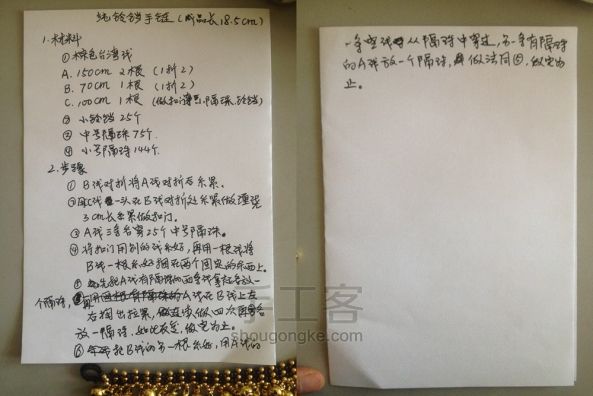 纯铃铛手链(成品长18.5cm)
1.材料
①棕色台湾线
A.150cm 2根 (1折2)
B.70cm 1根 (1折2)
C.100cm 1根 (做扣 隔珠、铃铛)
② 小铃铛25个
③ 中号隔珠75个.
④ 小号隔珠144个.
2.步骤
① B线对折将A线对折后系紧.
②取C线一头在B线对折处系紧做
3cm长系紧做扣门.
③A线三合套25个中号隔珠.
④将扣门用别的线系好,再用一根线将
B线一根系好捆在两个固定的东西上。
⑤ A线有隔珠的两
个隔珠, A线在B线上左
右掏出拉紧,做四次再
放一隔珠,如此反复,做完为止.
⑥ B线的另一根系好,用A线的
一条空线从隔珠中穿过,另一条有隔珠
的A线放一个隔珠,做法同⑤,做完为
止。
手工客
shougongke.com